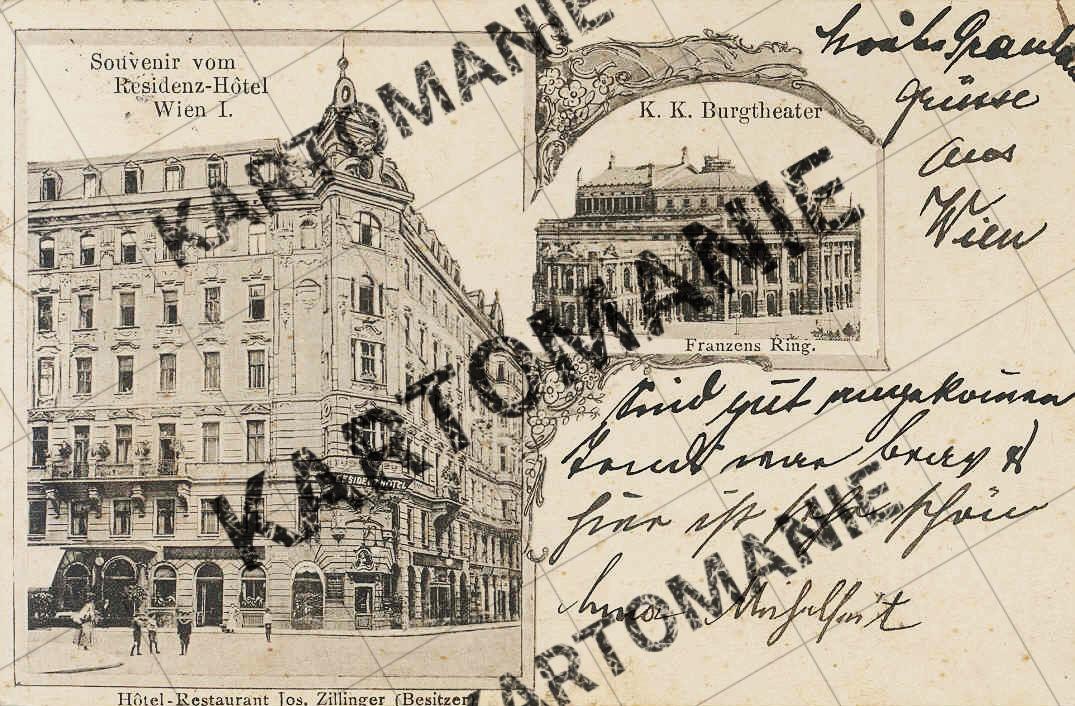 Souvenir vom
Residenz-Hôtel
Wien I.
K. K. Burgtheater
Franzens Ring.
RESIDENZ HOTEL
Hôtel-Restaurant Jos. Zillinger (Besitzer)
Grüsse
aus
Wien
Sind gut angekommen
war brav &
hier ist sehr schön
Anna
KARTOMANIE
KARTOMANIE
KARTOMANIE
KARTOMANIE